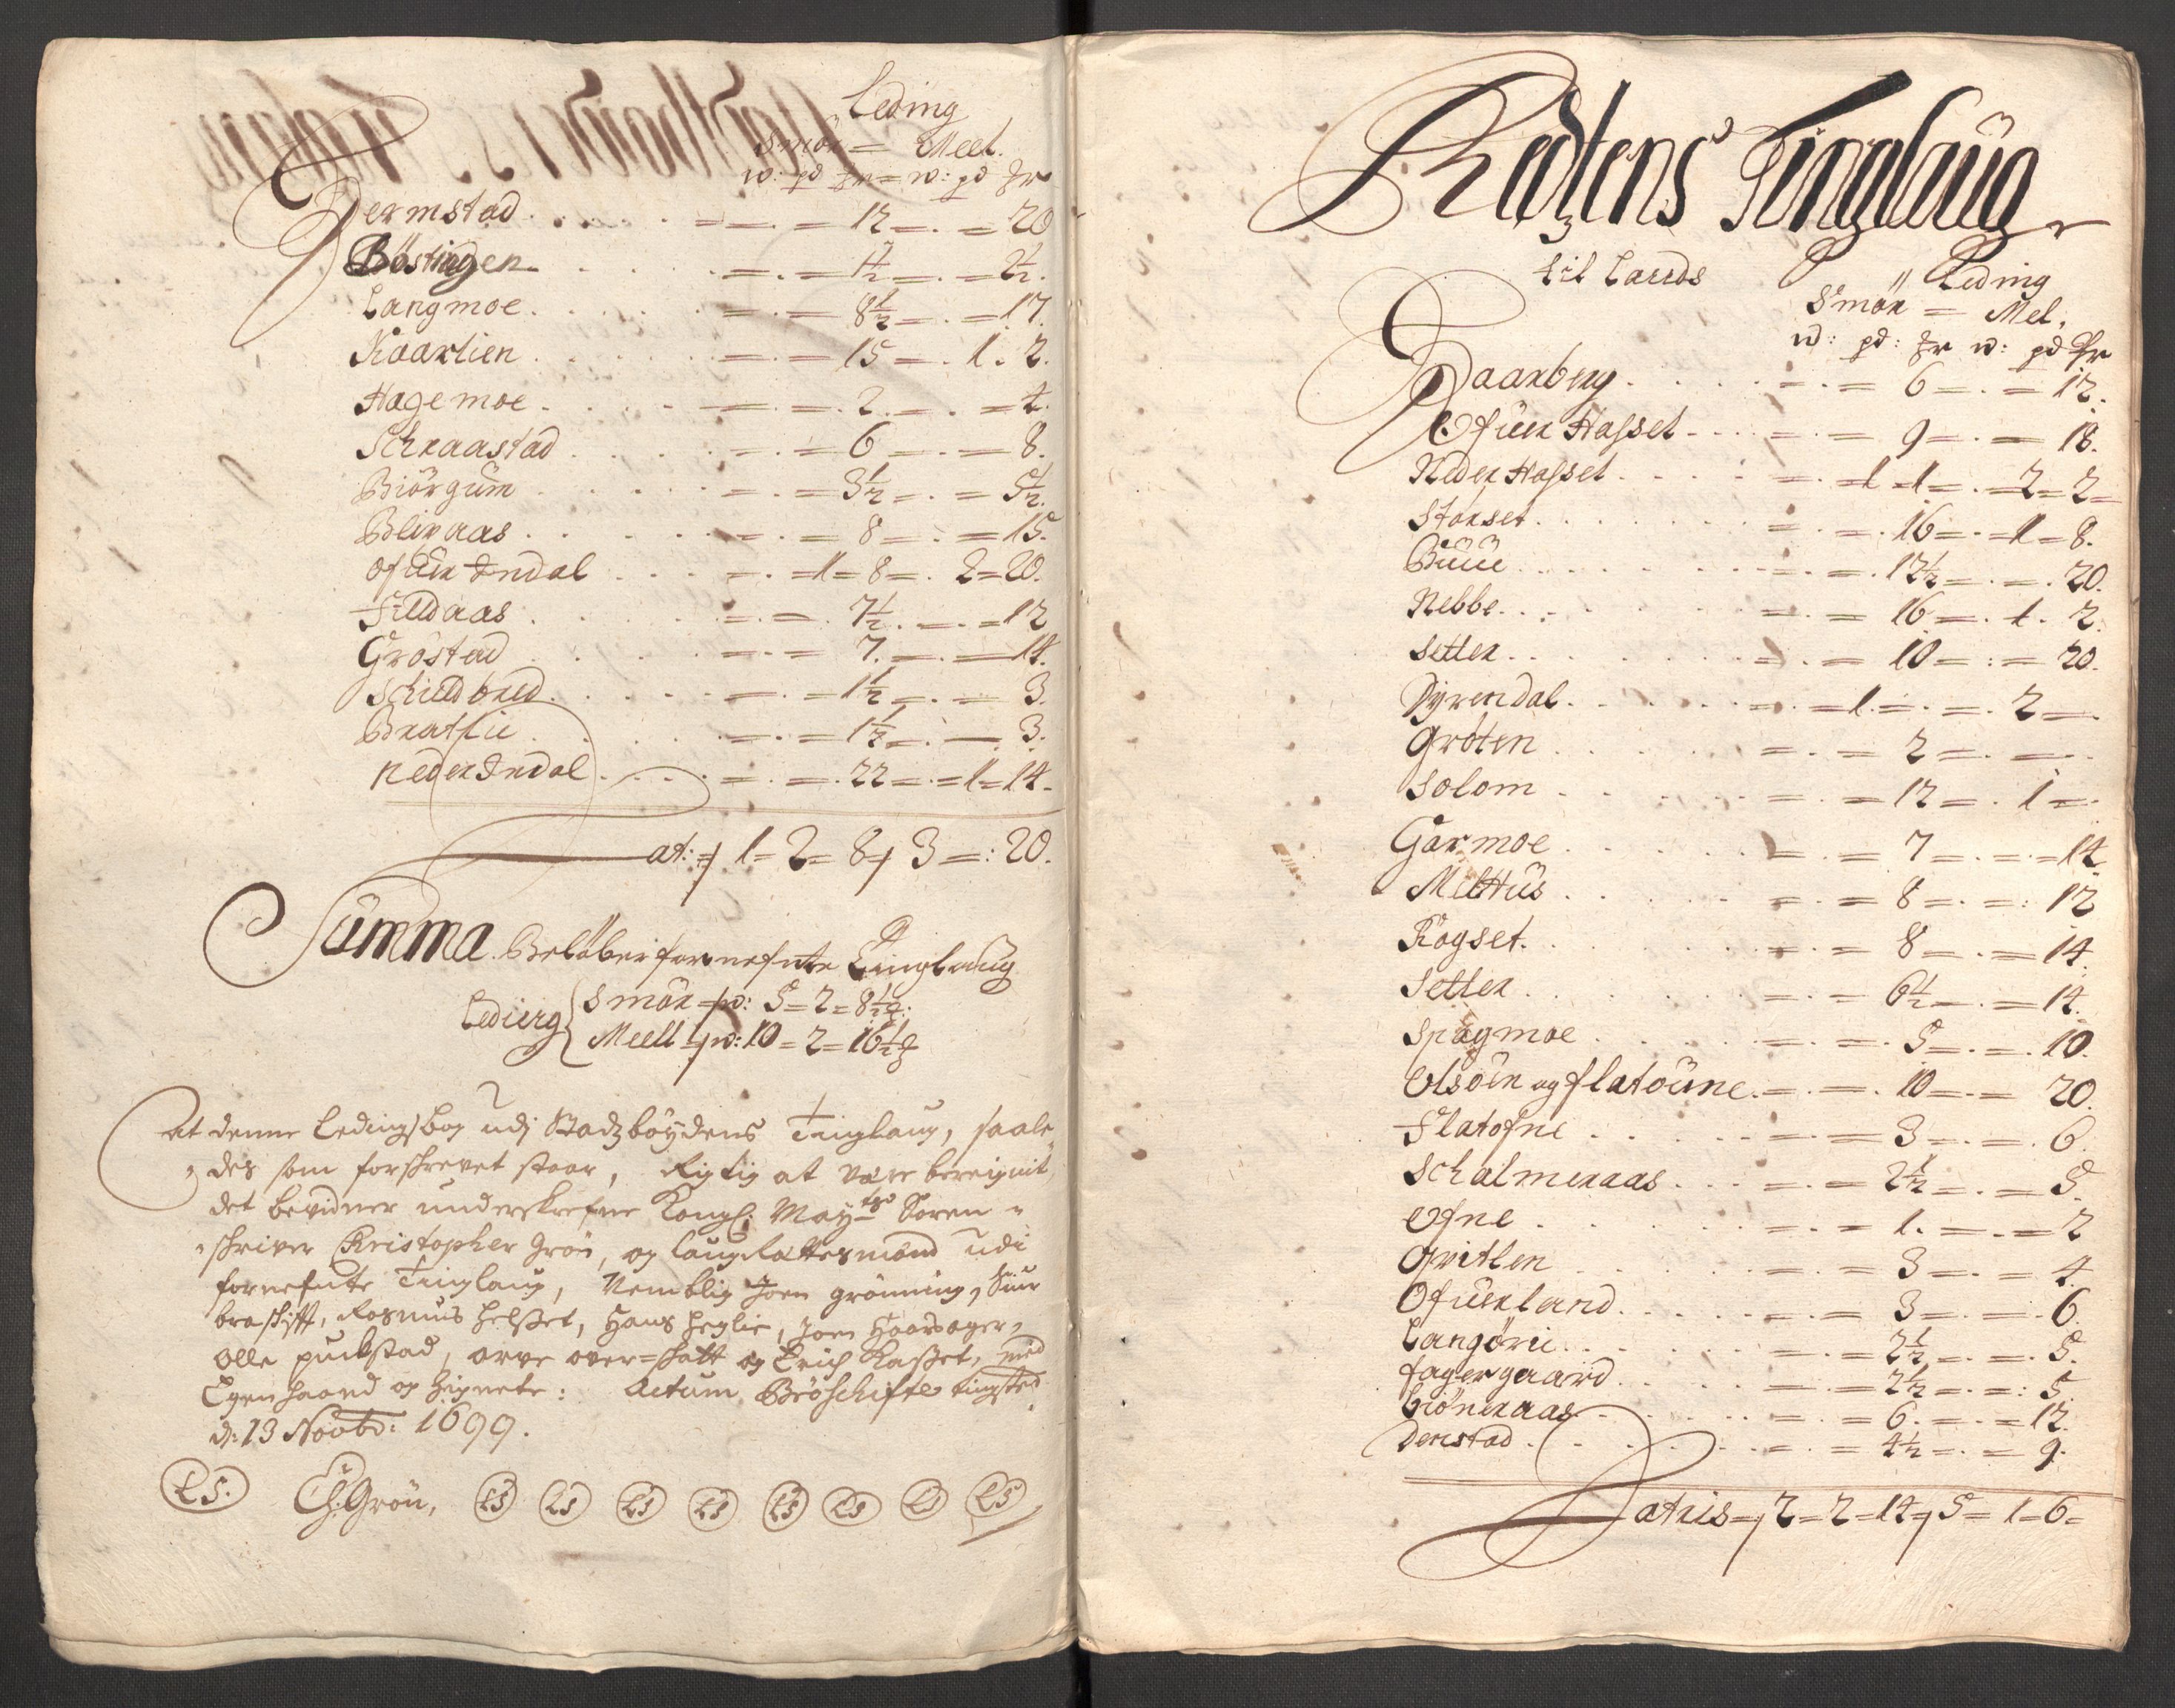 Leding
Smör = Meel.
w: pd ℔r = w: pd ℔r
Germstad . . . . = . = 12 = . = 20
Böstingen . . . = . = 1½ = . = 2½.
Langmoe . . . . = . = 8½ = . = 17.
Kaarlien . . . . = . = 15 = . 1. 2.
Hagemoe . . . . = . = . 2. = . = 4.
Schraastad . . . . = . = 6 = . = 8.
Biörgum . . . . = . = 3½ = . = 5½.
Blixaas . . . . = . = 8 = . = 15.
Ofuer Endal . . . = . = 1 = 8 = . 2 = 20.
Fieldaas . . . . = . = 7½. = . = 12
Gröstad . . . . = . = 7. = . = 14.
Schieldbred . . . . = . = 1½ = . = 3.
Bratlie . . . . = . = 1½ = . = 3.
Neder Endal . . . . = . = . 22 = . = 1 = 14.
at: = / 1 = 2 = 8 / 3 = : 20.
Summa. Belöber fornefnte Tinglaug
Leding { Smör = w: 5 = 2 = 8½ ℔:
Meell = w: 10 = 2 = 16½ ℔
At denne Ledingsbog udj Stadzböydens Tinglaug, saale
des som forschrevet staar, Rigtig at være bereignit,
det bevidner underskrefne Kongl: May:ts Soren
schriver Christopher Grön, og Laugrettesmænd udi
fornefnte Tinglaug, Nemblig Joen Grönning, Siur
braschifft, Rasmus Helset, Hans Heglie, Joen Haarsager,
Olle puckstad, Arve over=hatt og Erich Rasset, med
Egen haand og Zignete: Actum Bröschifte tingsted
d: 13 Novbr: 1699.
LS. Ch: Grön, LS LS LS LS LS LS LS LS
Redtens Tinglaug
til Lands Leding
Smör = Mel.
w: pd: ℔r w: pd ℔r
Daarberg . . . . = . = 6 = . = 12.
Ofuer Hasset . . . . = . = 9 = . = 18.
Neder Hasset . . . . = . = 1 1 = . = 2 = 2 =
Storset . . . . = . = . 16 = . = 1 = 8.
Buue . . . . = . = . 12½ = . = . 20.
Nebbe . . . . = . = 16 = . 1. 2.
Setter . . . . = . = 10 = : = 20.
Dyrendal . . . . = 1. = . = . 2 = .
Gröten . . . . = . = 2 = . = .
Solom . . . . = . = 12 = . 1 = .
Garmoe . . . . = . = 7 = . = . = 14
Melhus . . . . = . = 8 = . = : 12
Rogset . . . . = . = 8 = . = 14.
Setter . . . . = . = 6½ = . = 14.
Spragmoe . . . . = . = . 5 = . = . 10.
Olsöen og flatöune . = . = . 10 = . = 20.
Flatofne . . . . = . = 3 = . = . 6.
Schalmeraas . . . . = . = 2½ = . = 5.
Ofne . . . . = . = 1. = . = 2
Qvitlen . . . . = . = 3 = . = 4.
Ofuerland . . . . = . = 3 = . = . 6.
Langörie . . . . = . = 2½ = . = . 5.
fagergaard . . . . = . = 2½ = . = : 5.
biöneraas . . . . = . = 6. = . = 12.
Denstad . . . . = . = 4½ = . = 9.
Latus = / 2 = 2 = 14 / 5 = 1 = 6 =